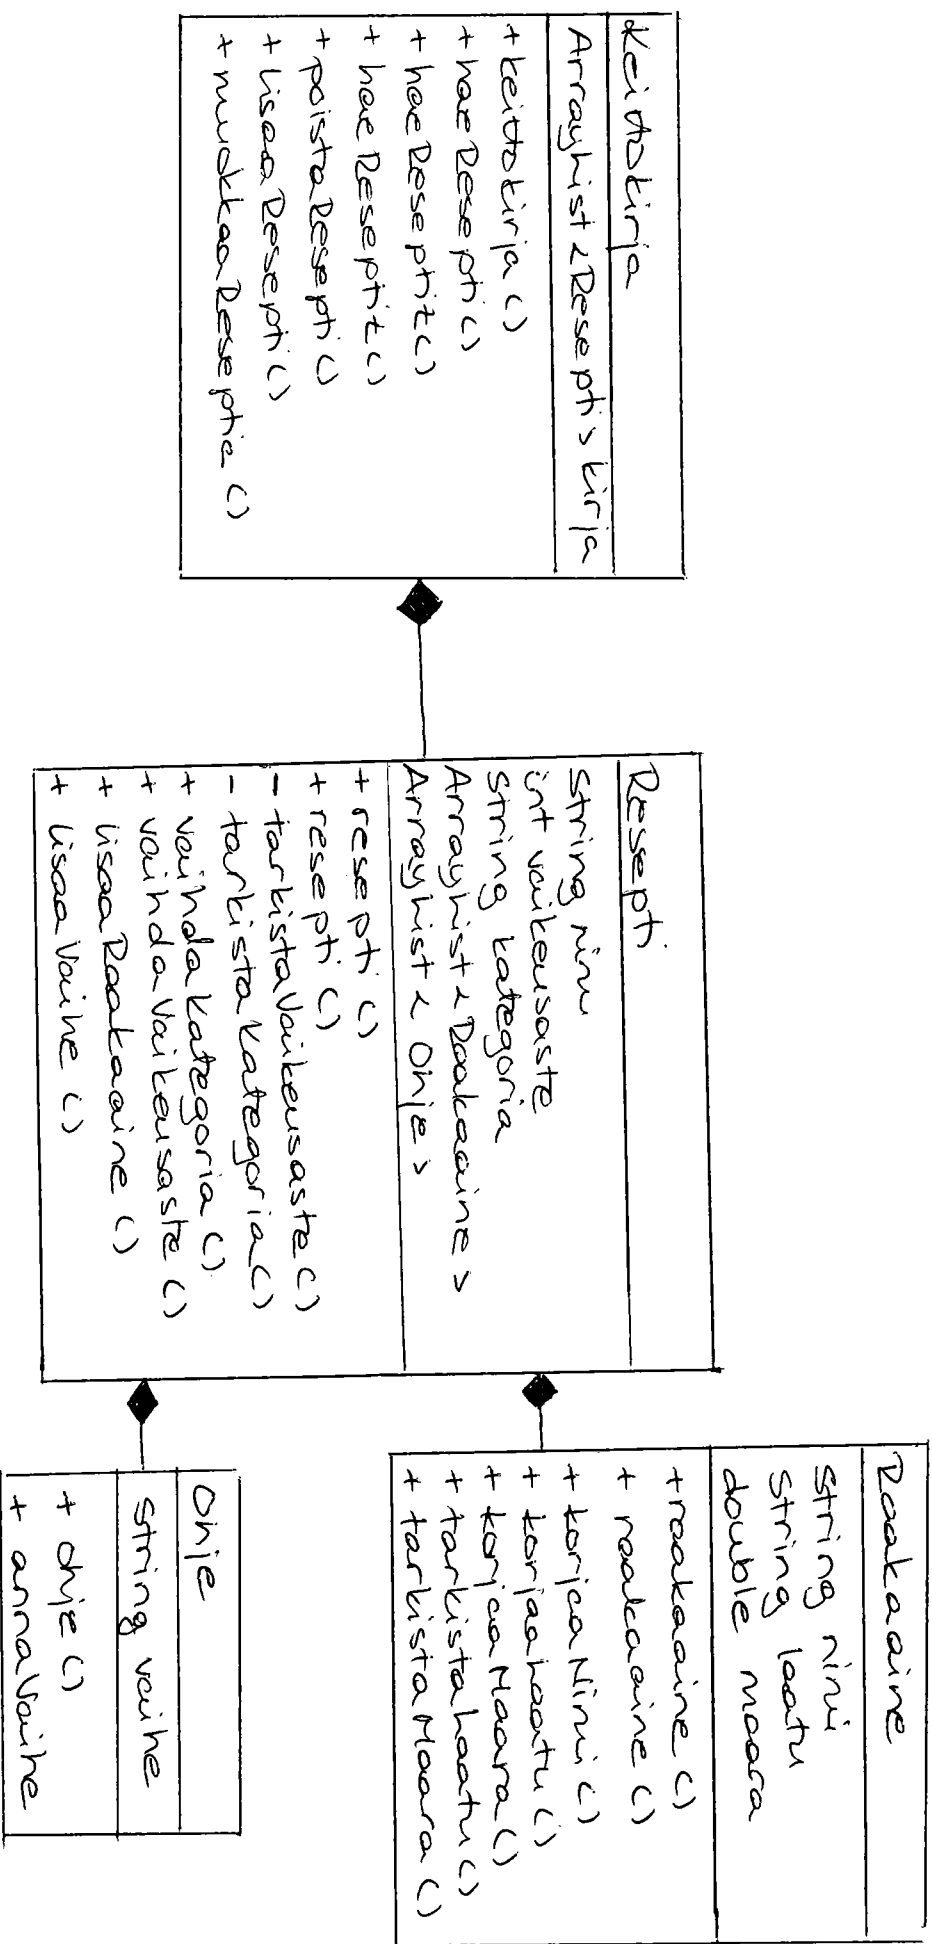 Keittokirja
ArrayList<Resepti> kirja
+ keittokirja ()
+ haeResepti ()
+ haeReseptit ()
+ haeReseptit ()
+ poistaResepti ()
+ lisaaResepti ()
+ muokkaaReseptia ()
Resepti
String nimi
int vaikeusaste
String kategoria
ArrayList<Raakaaine>
ArrayList<Ohje>
+ resepti ()
+ resepti ()
- tarkistaVaikeusaste ()
- tarkistaKategoria ()
+ vaihdaKategoria ()
+ vaihdaVaikeusaste ()
+ lisaaRaakaaine ()
+ lisaaVaihe ()
Raakaaine
String nimi
String laatu
double maara
+ raakaaine ()
+ raakaaine ()
+ korjaaNimi ()
+ korjaaLaatu ()
+ korjaaMaara ()
+ tarkistaLaatu ()
+ tarkistaMaara ()
Ohje
String vaihe
+ ohje ()
+ annaVaihe